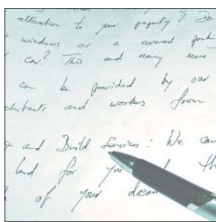 alteration to your property? Do
windows or a covered
car? This and many more
can be provided by our
and works from
and Build Services: We can
land for you
of your